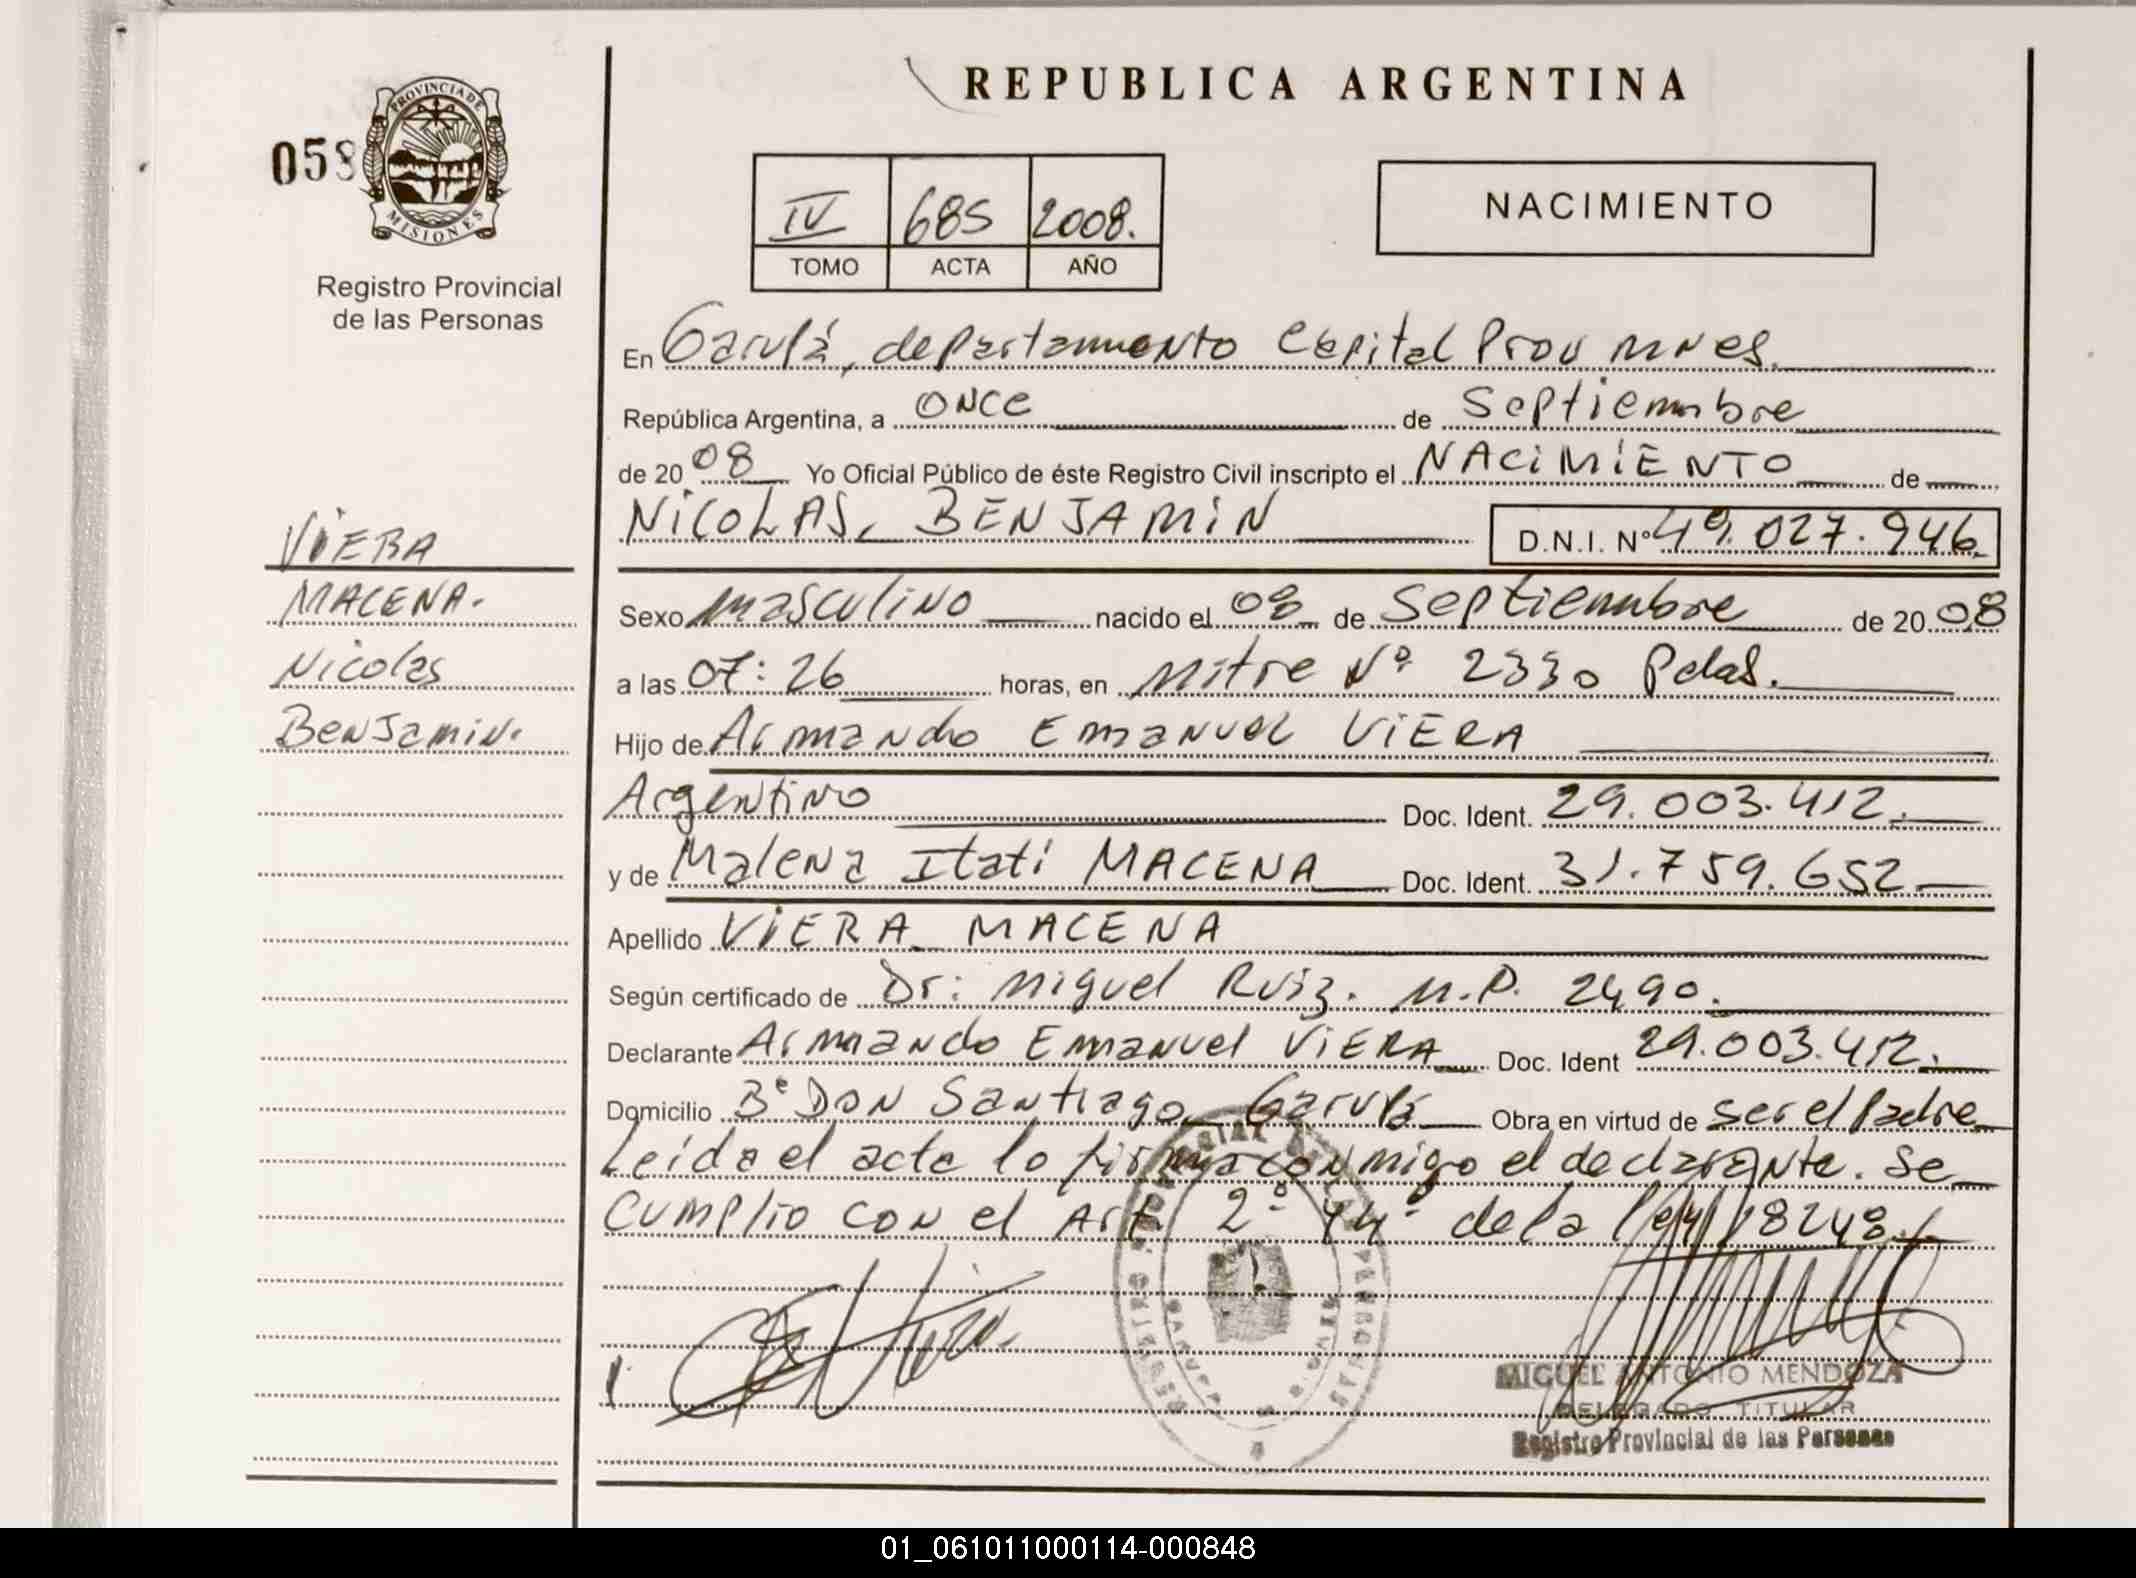 REPUBLICA ARGENTINA
PROVINCIA DE
MISIONES
058
Registro Provincial
de las Personas
IV 685 2008.
TOMO ACTA AÑO
NACIMIENTO
En Garupá, departamento Capital Prov Mnes.
República Argentina, a once de Septiembre
de 2008 Yo Oficial Público de éste Registro Civil inscripto el NACIMIENTO de
NICOLAS, BENJAMIN D.N.I. Nº 49.027.946.
VIERA
MACENA.
Nicolas
Benjamin.
Sexo masculino nacido el 08 de Septiembre de 2008
a las 07:26 horas, en Mitre Nº 2330 Pdas.
Hijo de Armando Emanuel VIERA
Argentino Doc. Ident. 29.003.412.
y de Malena Itatí MACENA Doc. Ident. 31.759.652
Apellido VIERA MACENA
Según certificado de Dr: Miguel Ruiz. M.P. 2490.
Declarante Armando Emanuel VIERA Doc. Ident 29.003.412.
Domicilio Bº DON Santiago Garupá Obra en virtud de ser el Padre
Leída el acta lo firma conmigo el declarante. Se
cumplio con el Art 2º 44º de la ley 18248.
REGISTRO PROVINCIAL DE LAS PERSONAS
MIGUEL ANTONIO MENDOZA
DELEGADO TITULAR
Registro Provincial de las Personas
01_061011000114-000848